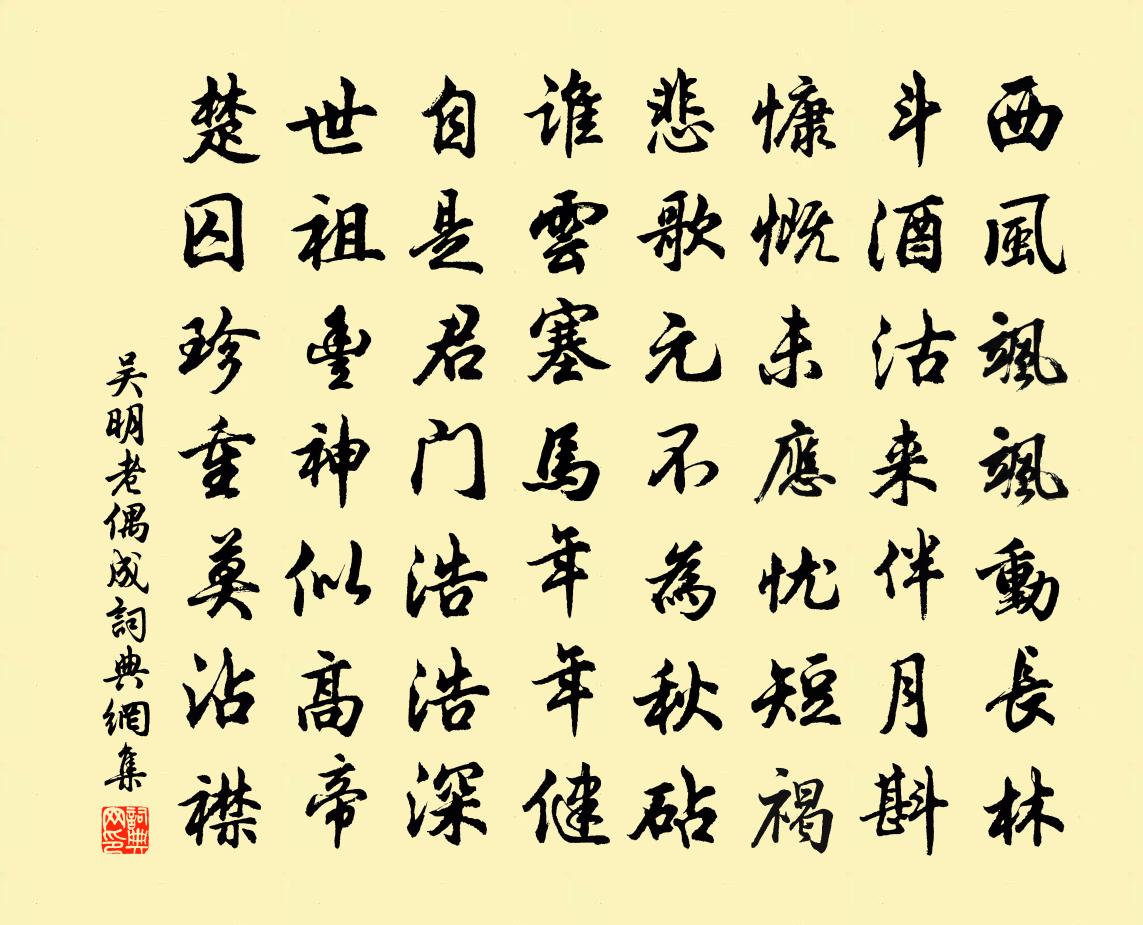 西風颯颯動長林
斗酒沽来伴月斟
慷慨未應忧短褐
悲歌元不為秋砧
谁雲塞馬年年健
自是君门浩浩深
世祖豊神似高帝
楚囚珍重莫沾襟
吴明老偶成詞典網集
詞典网印